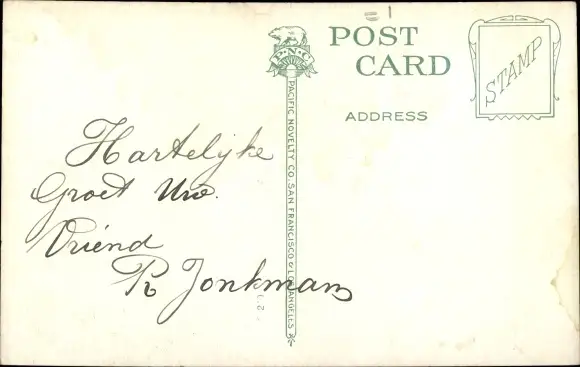 POST CARD
P.N.C.
STAMP
ADDRESS
PACIFIC NOVELTY CO. SAN FRANCISCO & LOS ANGELES
Hartelyke
Groet Uw.
Vriend
R Jonkman